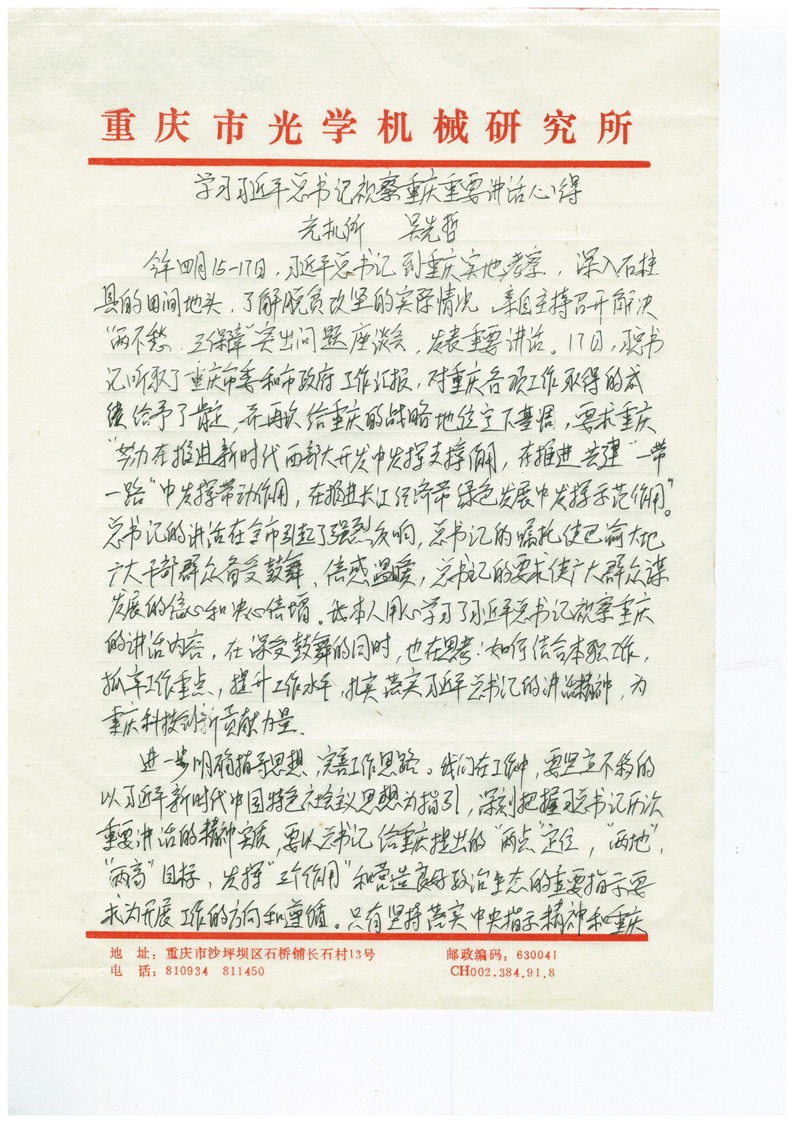 重庆市光学机械研究所
学习习近平总书记视察重庆重要讲话心得
光机所 吴先哲
今年四月15-17日，习近平总书记到重庆实地考察，深入石柱
县的田间地头，了解脱贫攻坚的实际情况，亲自主持召开解决
“两不愁、三保障”突出问题座谈会，发表重要讲话。17日，总书
记听取了重庆市委和市政府工作汇报，对重庆各项工作取得的成
绩给予了肯定，并再次给重庆的战略地位定下基调，要求重庆
“努力在推进新时代西部大开发中发挥支撑作用，在推进共建“一带
一路”中发挥带动作用，在推进长江经济带绿色发展中发挥示范作用”。
总书记的讲话在全市引起了强烈反响，总书记的嘱托使巴渝大地
广大干部群众备受鼓舞、倍感温暖，总书记的要求使广大群众谋
发展的信心和决心倍增。我本人用心学习了习近平总书记视察重庆
的讲话内容，在深受鼓舞的同时，也在思考：如何结合本职工作，
抓牢工作重点，提升工作水平，扎实落实习近平总书记的讲话精神，为
重庆科技创新贡献力量。
进一步明确指导思想，完善工作思路。我们在工作中，要坚立不移的
以习近平新时代中国特色社会主义思想为指引，深刻把握习总书记历次
重要讲话的精神实质，要以总书记给重庆提出的“两点”定位，“两地”、
“两高”目标，发挥“三个作用”和营造良好政治生态的重要指示要
求为开展工作的方向和遵循。只有坚持落实中央指示精神和重庆
地 址：重庆市沙坪坝区石桥铺长石村13号 邮政编码：630041
电 话：810934 811450 CH002.384.91.8